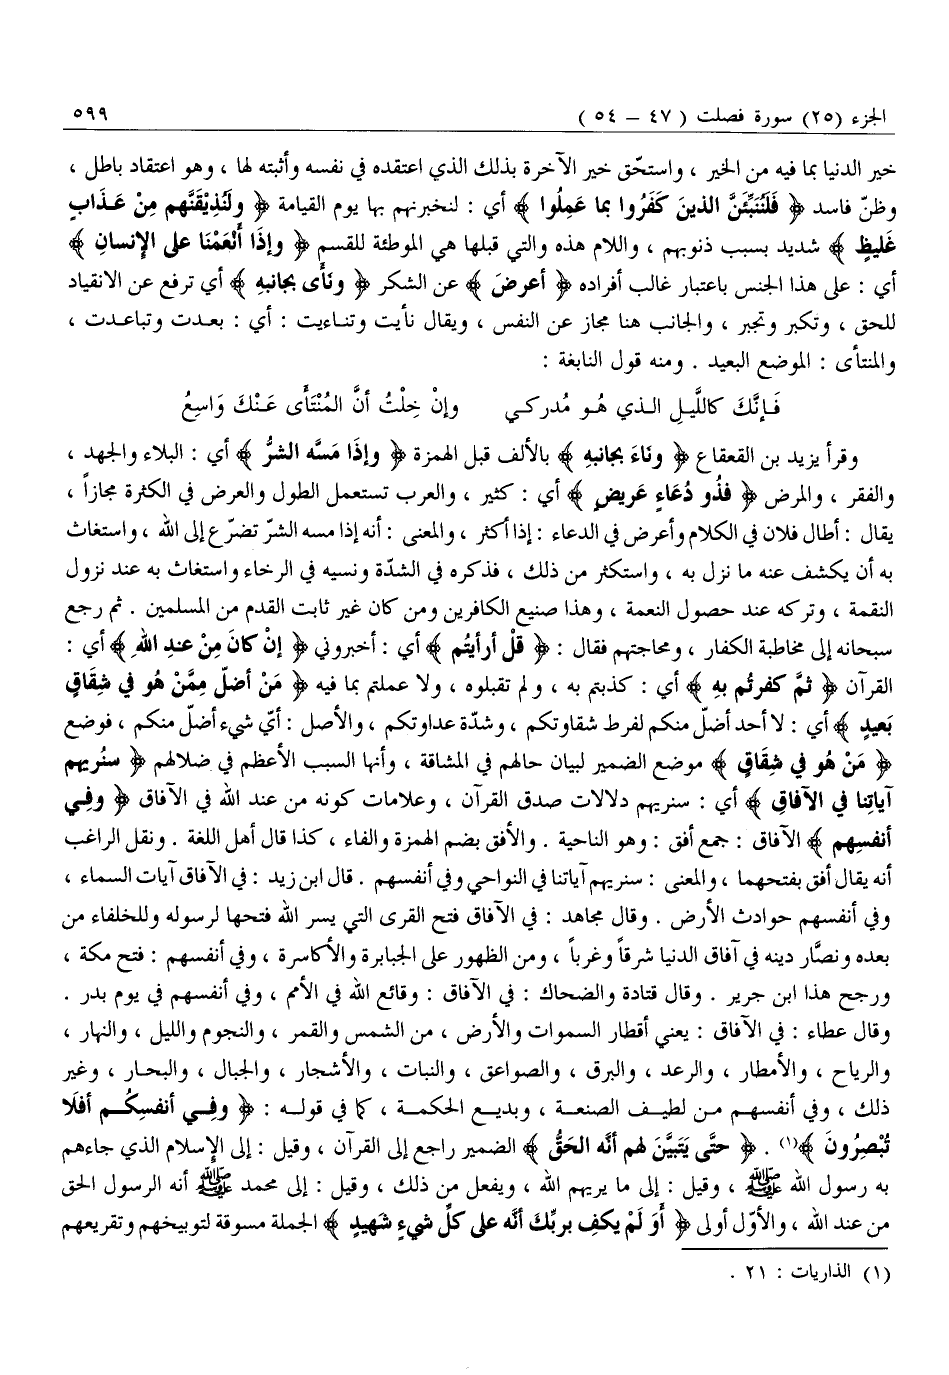 الجزء (٢٥) سورة فصلت ( ٤٧ – ٥٤ ) ٥٩٩
خير الدنيا بما فيه من الخير ، واستحّق خير الآخرة بذلك الذي اعتقده في نفسه وأثبته لها ، وهو اعتقاد باطل ،
وظنّ فاسد ﴿ فَلَنُنَبِّئَنَّ الذينَ كَفَرُوا بما عَمِلُوا ﴾ أي : لنخبرنهم بها يوم القيامة ﴿ ولَنُذِيقَنَّهم مِنْ عَـذَابٍ
غَليظٍ ﴾ شديد بسبب ذنوبهم ، واللام هذه والتي قبلها هي الموطئة للقسم ﴿ وإذَا أنْعَمْنَا على الإنسانِ ﴾
أي : على هذا الجنس باعتبار غالب أفراده ﴿ أعرضَ ﴾ عن الشكر ﴿ ونَأى بجانبهِ ﴾ أي ترفع عن الانقياد
للحق ، وتكبر وتجبر ، والجانب هنا مجاز عن النفس ، ويقال نأيت وتناءيت : أي : بعدت وتباعدت ،
والمنتأى : الموضع البعيد . ومنه قول النابغة :
فَـإنَّكَ كاللَّيلِ الـذي هُـو مُدركـي وإنْ خِلْتُ أنَّ المُنْتَأَى عَـنْكَ وَاسِعُ
وقرأ يزيد بن القعقاع ﴿ ونَاءَ بجانبهِ ﴾ بالألف قبل الهمزة ﴿ وإذَا مَسَّه الشرُّ ﴾ أي : البلاء والجهد ،
والفقر ، والمرض ﴿ فذُو دُعَاءٍ عَريضٍ ﴾ أي : كثير ، والعرب تستعمل الطول والعرض في الكثرة مجازاً ،
يقال : أطال فلان في الكلام وأعرض في الدعاء : إذا أكثر ، والمعنى : أنه إذا مسه الشرّ تضرّع إلى الله ، واستغاث
به أن يكشف عنه ما نزل به ، واستكثر من ذلك ، فذكره في الشدّة ونسيه في الرخاء واستغاث به عند نزول
النقمة ، وتركه عند حصول النعمة ، وهذا صنيع الكافرين ومن كان غير ثابت القدم من المسلمين . ثم رجع
سبحانه إلى مخاطبة الكفار ، ومحاجتهم فقال : ﴿ قُلْ أرأيتُم ﴾ أي : أخبروني ﴿ إنْ كانَ مِنْ عندِ اللهِ ﴾ أي :
القرآن ﴿ ثمَّ كفرتُم بهِ ﴾ أي : كذبتم به ، ولم تقبلوه ، ولا عملتم بما فيه ﴿ مَنْ أضلّ مِمَّنْ هُو في شِقَاقٍ
بَعيدٍ ﴾ أي : لا أحد أضلّ منكم لفرط شقاوتكم ، وشدّة عداوتكم ، والأصل : أيّ شيء أضلّ منكم ، فوضع
﴿ مَنْ هُو في شِقَاقٍ ﴾ موضع الضمير لبيان حالهم في المشاقة ، وأنها السبب الأعظم في ضلالهم ﴿ سنُريهم
آياتِنا في الآفاقِ ﴾ أي : سنريهم دلالات صدق القرآن ، وعلامات كونه من عند الله في الآفاق ﴿ وفِـي
أنفسِهم ﴾ الآفاق : جمع أفق : وهو الناحية . والأفق بضم الهمزة والفاء ، كذا قال أهل اللغة . ونقل الراغب
أنه يقال أفق بفتحهما ، والمعنى : سنريهم آياتنا في النواحي وفي أنفسهم . قال ابن زيد : في الآفاق آيات السماء ،
وفي أنفسهم حوادث الأرض . وقال مجاهد : في الآفاق فتح القرى التي يسر الله فتحها لرسوله وللخلفاء من
بعده ونصَّار دينه في آفاق الدنيا شرقاً وغرباً ، ومن الظهور على الجبابرة والأكاسرة ، وفي أنفسهم : فتح مكة ،
ورجح هذا ابن جرير . وقال قتادة والضحاك : في الآفاق : وقائع الله في الأمم ، وفي أنفسهم في يوم بدر .
وقال عطاء : في الآفاق : يعني أقطار السموات والأرض ، من الشمس والقمر ، والنجوم والليل ، والنهار ،
والرياح ، والأمطار ، والرعد ، والبرق ، والصواعق ، والنبات ، والأشجار ، والجبال ، والبحـار ، وغير
ذلك ، وفي أنفسهـم مـن لطيـف الصنعـة ، وبديـع الحكمـة ، كما في قولـه : ﴿ وفِـي أنفسِكُـم أفَلَا
تُبْصِرُونَ ﴾(١) . ﴿ حتَّى يَتَبيَّنَ لهم أنَّه الحَقُّ ﴾ الضمير راجع إلى القرآن ، وقيل : إلى الإسلام الذي جاءهم
به رسول الله ﷺ ، وقيل : إلى ما يريهم الله ، ويفعل من ذلك ، وقيل : إلى محمد ﷺ أنه الرسول الحق
من عند الله ، والأوّل أولى ﴿ أوَ لَمْ يكفِ بربِّكَ أنَّه على كلِّ شيءٍ شَهيدٍ ﴾ الجملة مسوقة لتوبيخهم وتقريعهم
(١) الذاريات : ٢١ .